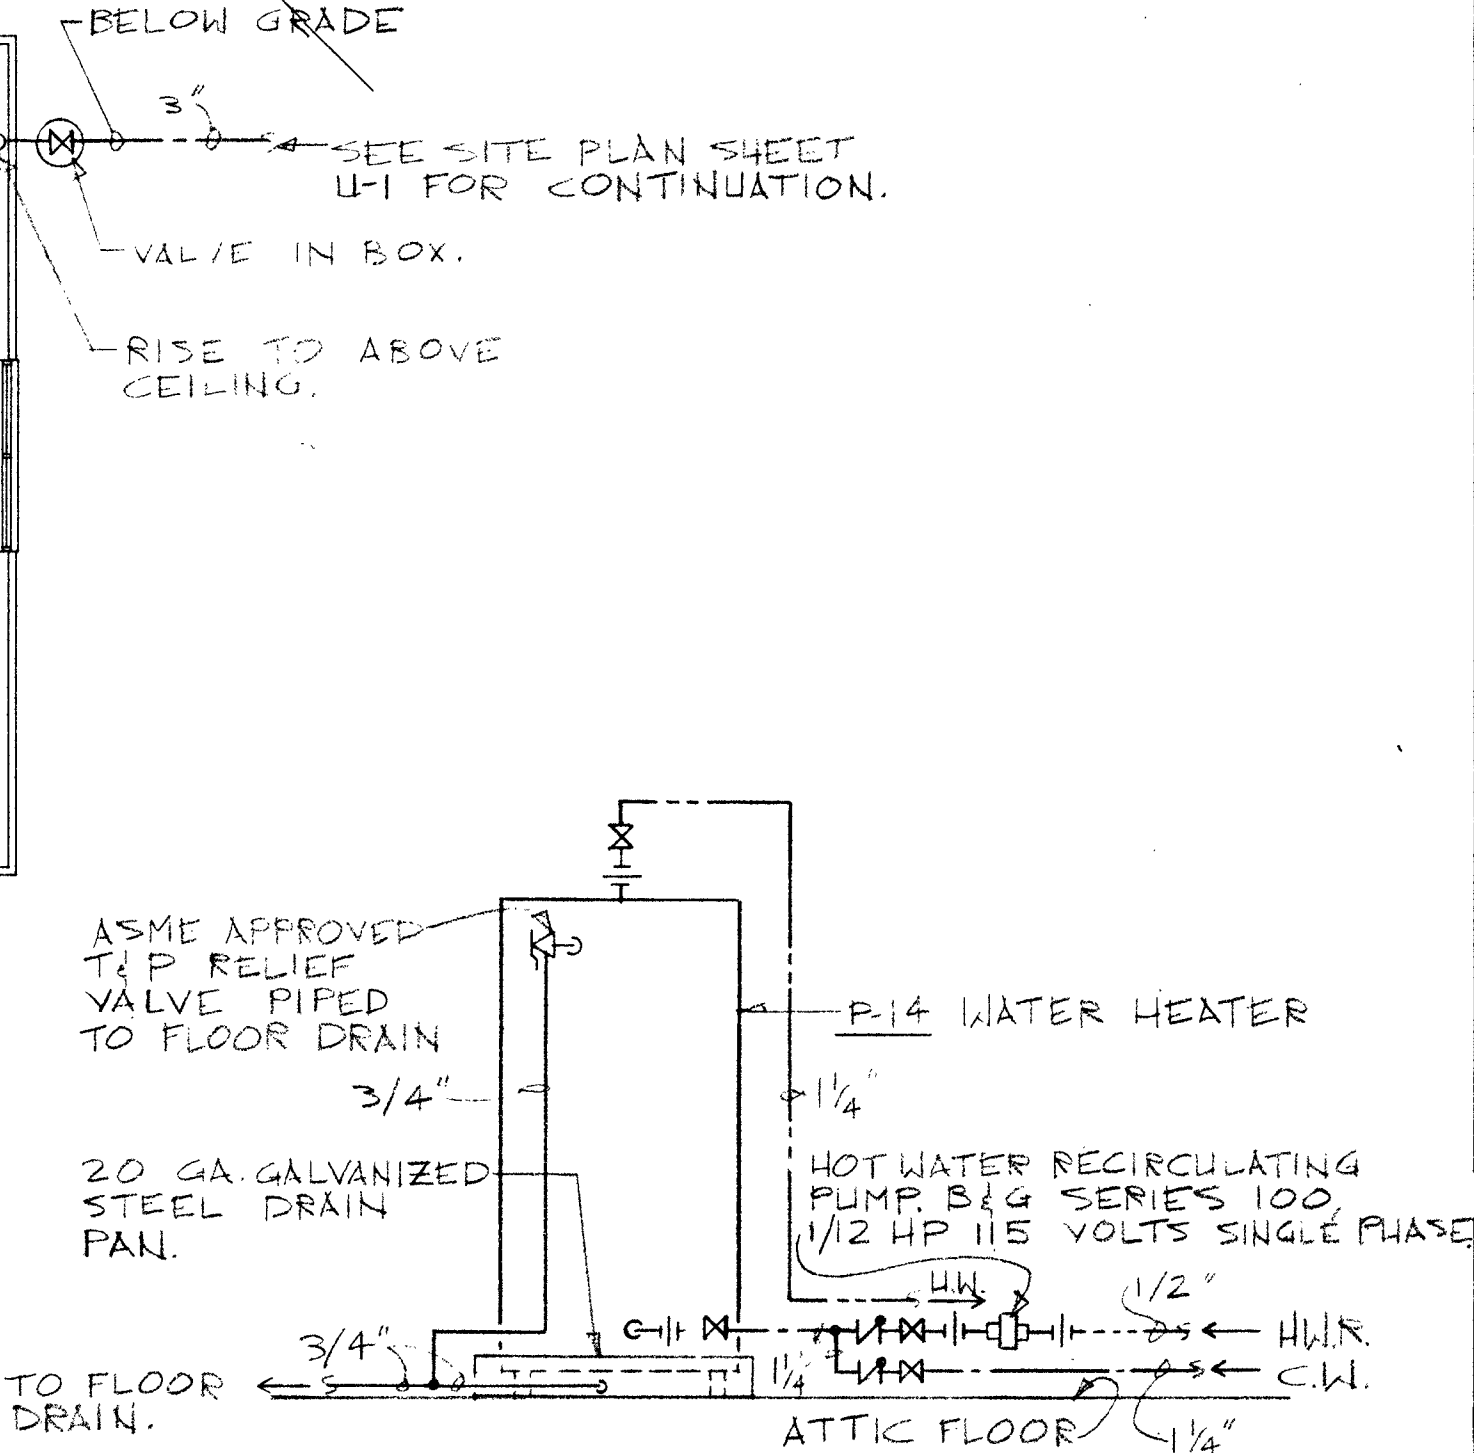 BELOW GRADE
3"
SEE SITE PLAN SHEET
U-1 FOR CONTINUATION.
VALVE IN BOX.
RISE TO ABOVE
CEILING.
ASME APPROVED
T&P RELIEF
VALVE PIPED
TO FLOOR DRAIN
P-14 WATER HEATER
3/4"
1 1/4"
20 GA. GALVANIZED
STEEL DRAIN
PAN.
HOT WATER RECIRCULATING
PUMP. B&G SERIES 100,
1/12 HP 115 VOLTS SINGLE PHASE.
H.W.
1/2"
H.W.R.
3/4"
1 1/4"
C.W.
TO FLOOR
DRAIN.
ATTIC FLOOR
1 1/4"